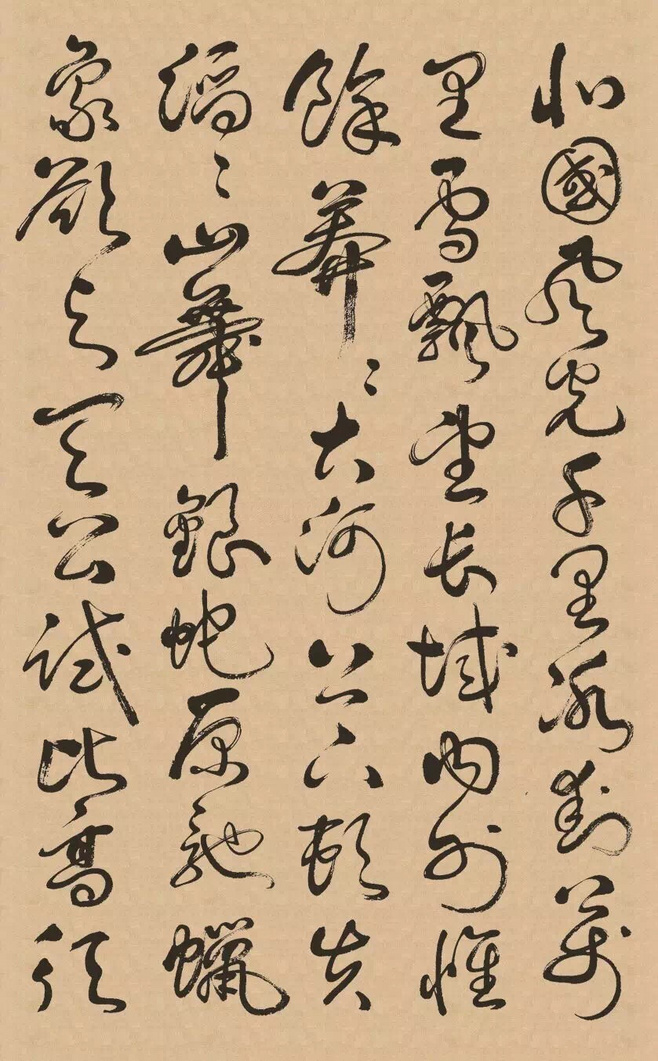 北國風光千里冰封萬
里雪飄望长城内外惟
餘莽〻大河上下頓失
滔〻山舞銀蛇原馳蠟
象欲与天公試比高須